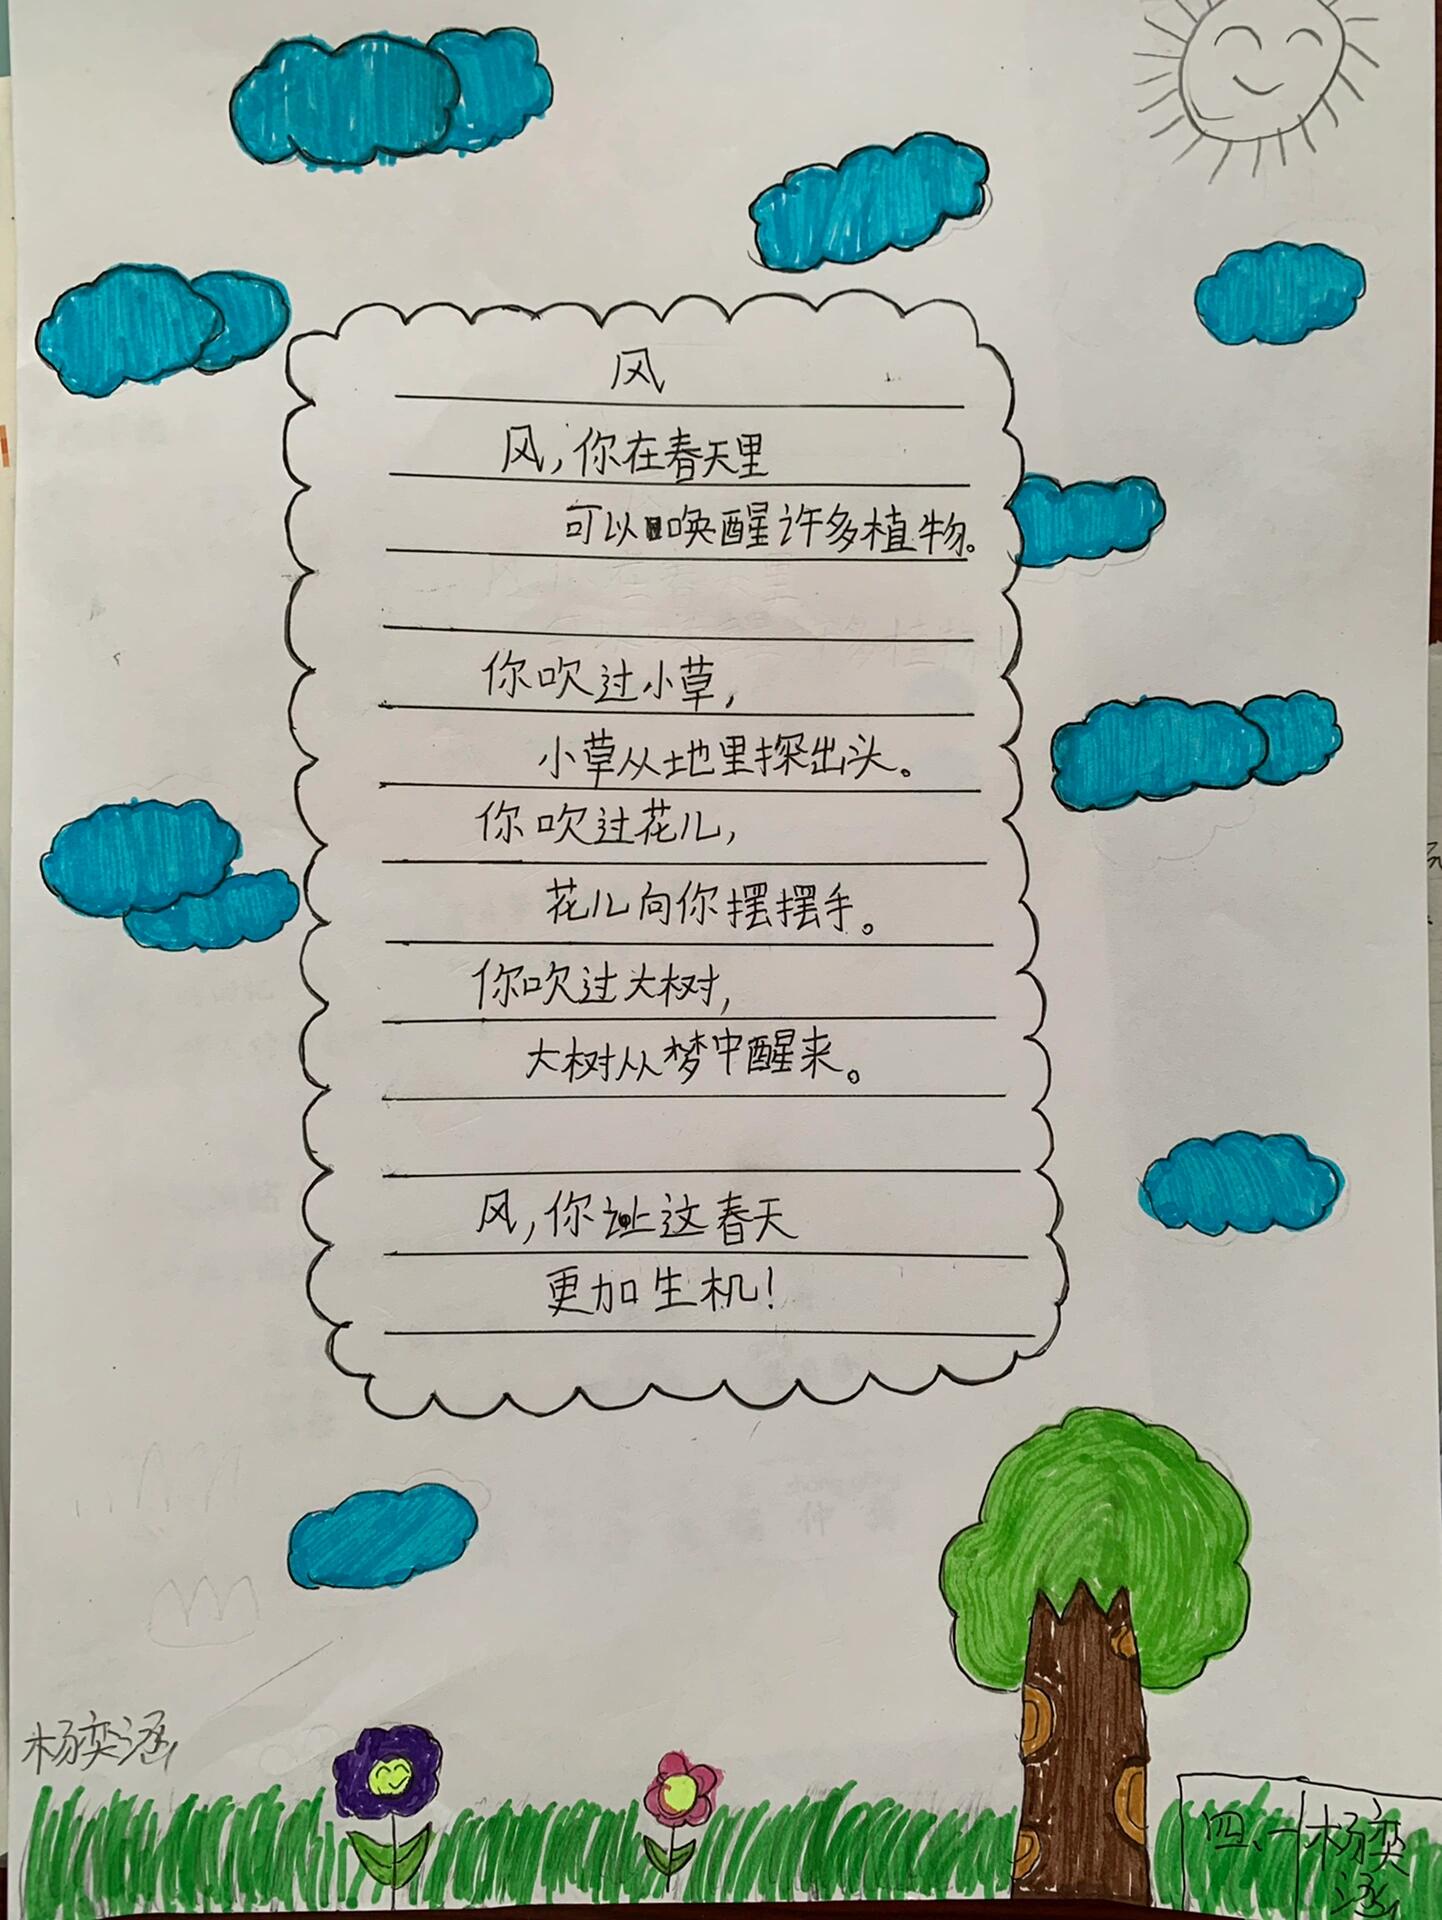 风
风,你在春天里
可以唤醒许多植物。
你吹过小草,
小草从地里探出头。
你吹过花儿,
花儿向你摆摆手。
你吹过大树,
大树从梦中醒来。
风,你让这春天
更加生机!
杨奕涵
四、一 杨奕涵